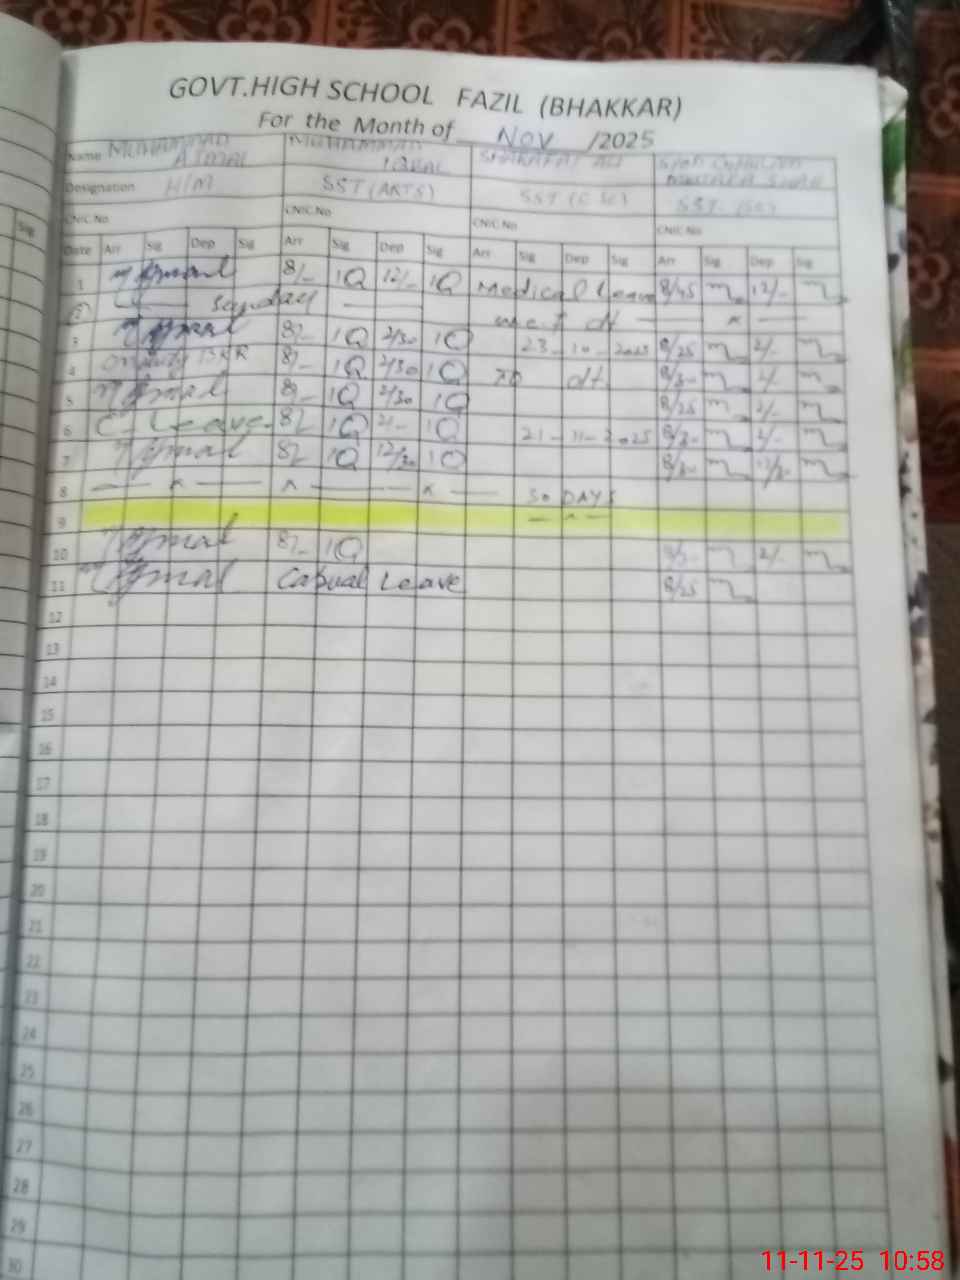 GOVT.HIGH SCHOOL FAZIL (BHAKKAR)
For the Month of NOV /2025
Name MUHAMMAD AJMAL MUHAMMAD IQBAL SHARAFAT ALI
Designation H/M SST (ARTS) SST (C.Sc) SST (Sc)
CNIC.No CNIC.No CNIC.No CNIC.No
Date Arr Sig Dep Sig Arr Sig Dep Sig Arr Sig Dep Sig Arr Sig Dep Sig
1 Ajmal 8/- IQ 12/- IQ Medical Leave 8/45 12/-
2 Sunday w.e.f dt
3 Ajmal 8/- IQ 2/30 IQ 23-10-2025 8/25 2/-
4 On Duty BKR 8/- IQ 2/30 IQ to dt. 8/3- 2/-
5 Ajmal 8/- IQ 2/30 IQ 8/25 2/-
6 C. Leave 8/- IQ 2/- IQ 21-11-2025 8/3- 2/-
7 Ajmal 8/- IQ 12/30 IQ 8/3- 12/3-
8 — x — x — x — 30 DAYS
9 — x —
10 Ajmal 8/- IQ 2/-
11 Ajmal Casual Leave 8/25
12
13
14
15
16
17
18
19
20
21
22
23
24
25
26
27
28
29
30
11-11-25 10:58